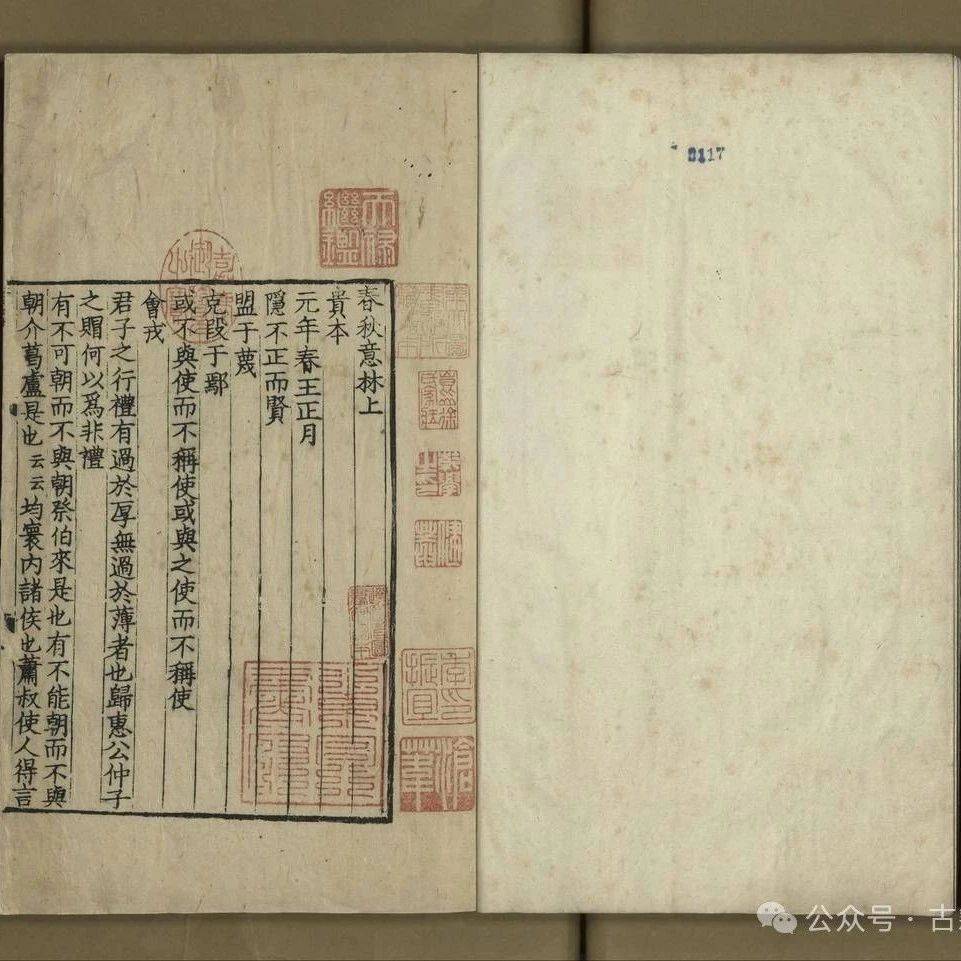 春秋意林上
貴本
元年春王正月
隱不正而賢
盟于蔑
克段于鄢
或不與使而不稱使或與之使而不稱使
會戎
君子之行禮有過於厚無過於薄者也歸惠公仲子
之賵何以爲非禮
有不可朝而不與朝祭伯來是也有不能朝而不與
朝介葛盧是也云云均寰內諸侯也蕭叔使人得言
天祿
繼鑑
季振宜
印
滄
葦
3117
公众号·古